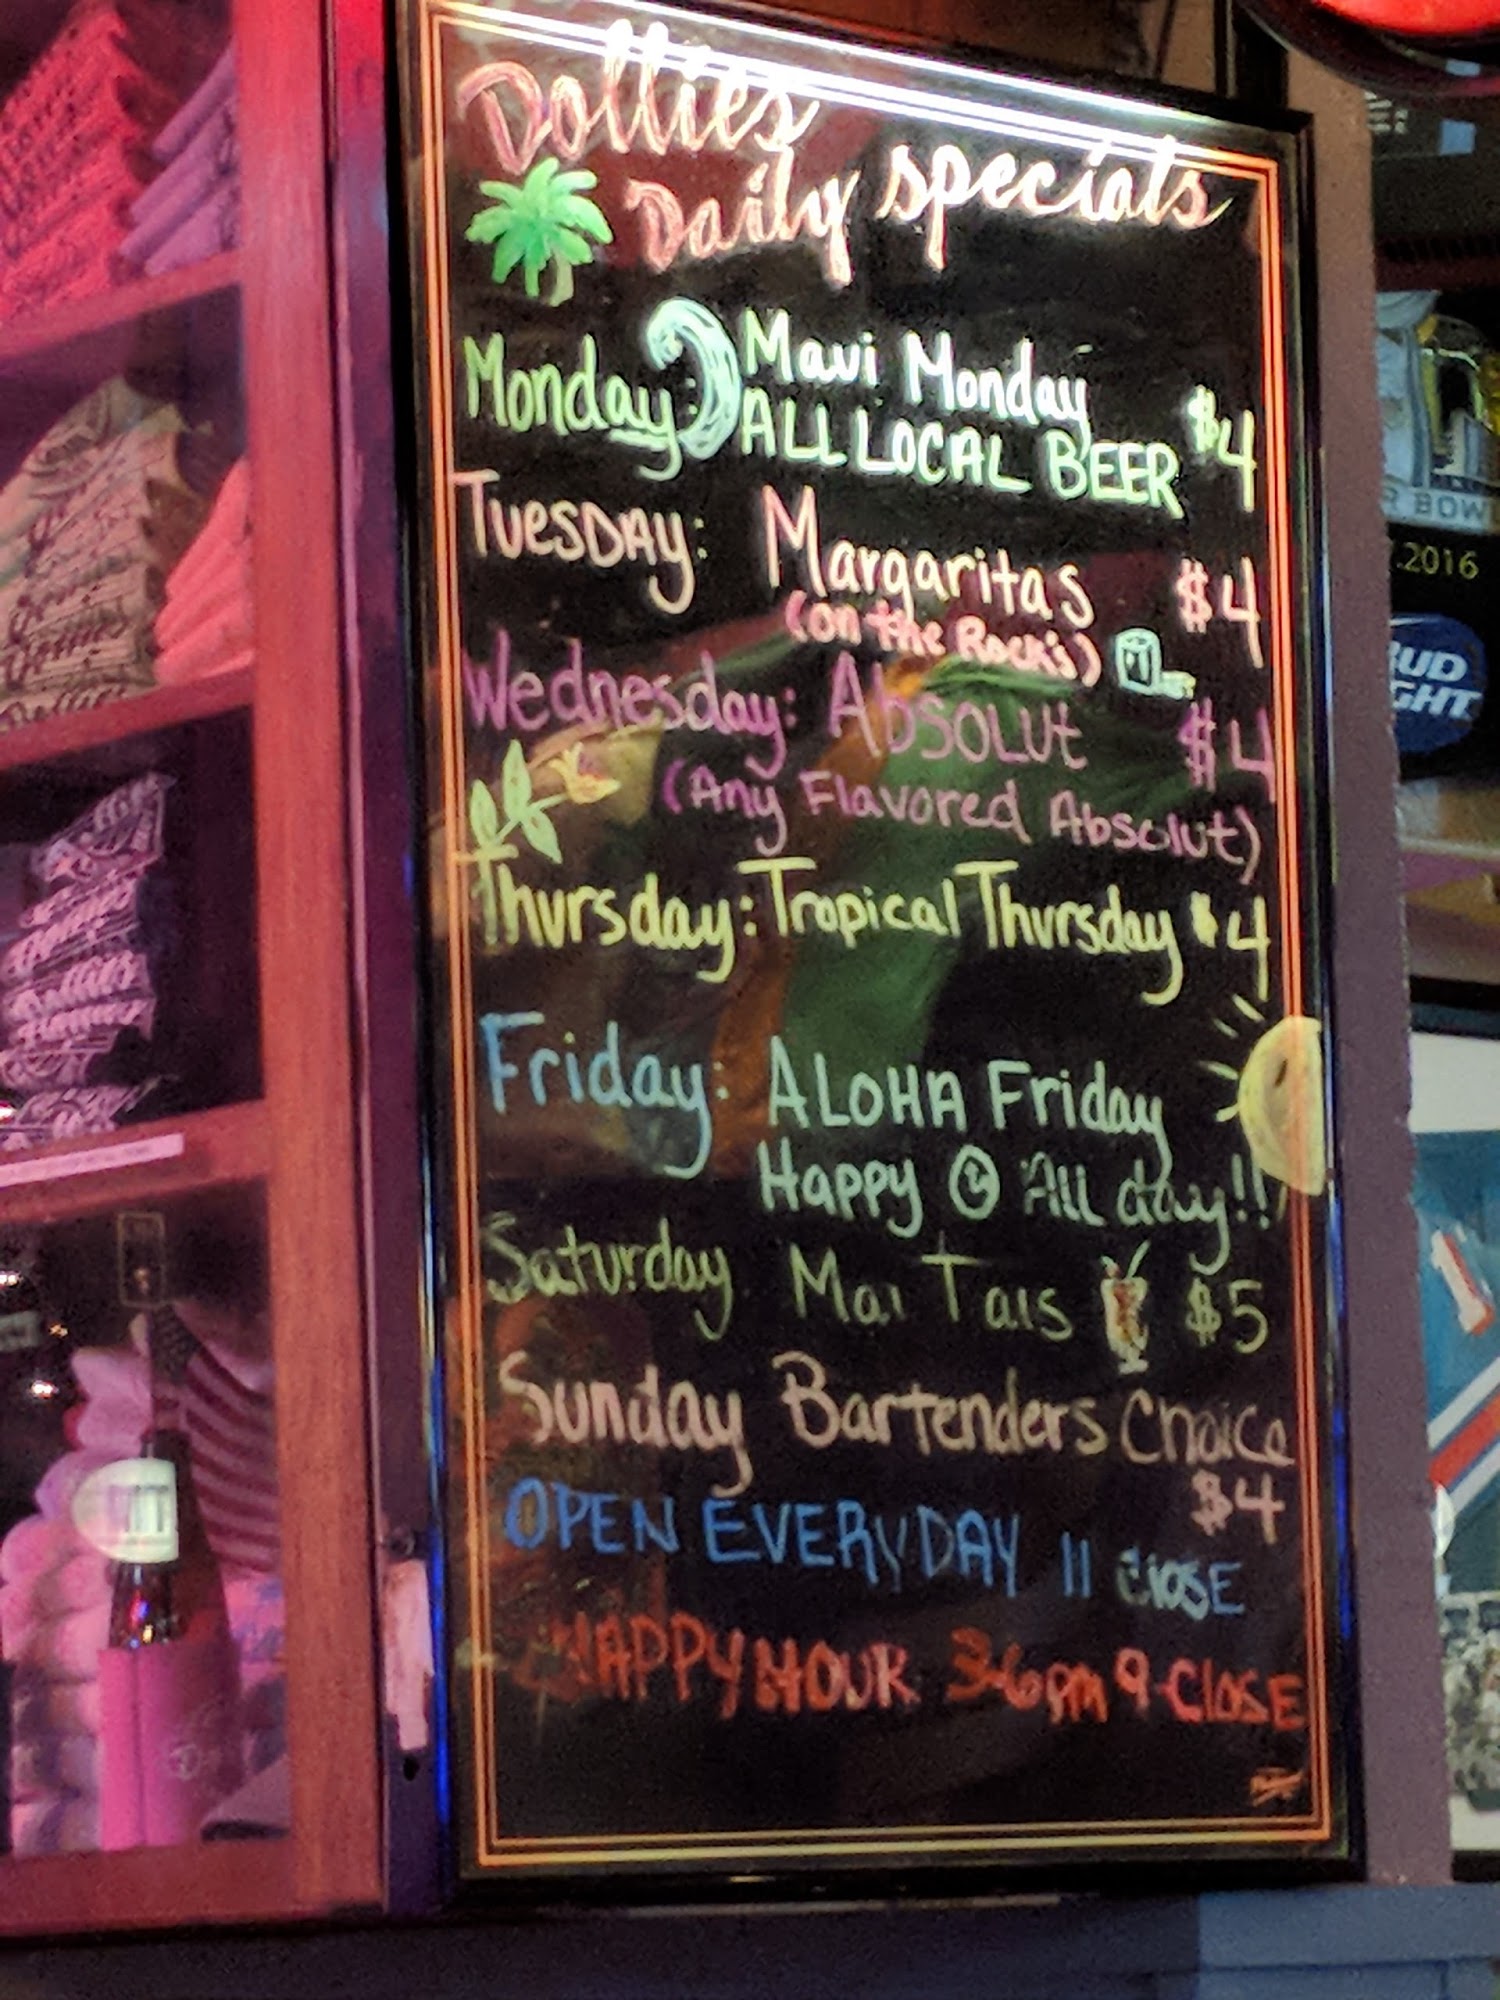 Dollies
Daily specials
Monday: Maui Monday
ALL LOCAL BEER $4
Tuesday: Margaritas $4
(on the Rocks)
Wednesday: Absolut $4
(Any Flavored Absolut)
Thursday: Tropical Thursday $4
Friday: ALOHA Friday
Happy All day!!
Saturday Mai Tais $5
Sunday Bartenders Choice
$4
OPEN EVERYDAY 11 CLOSE
HAPPY HOUR 3-6pm 9-CLOSE
R BOW
.2016
BUD
GHT